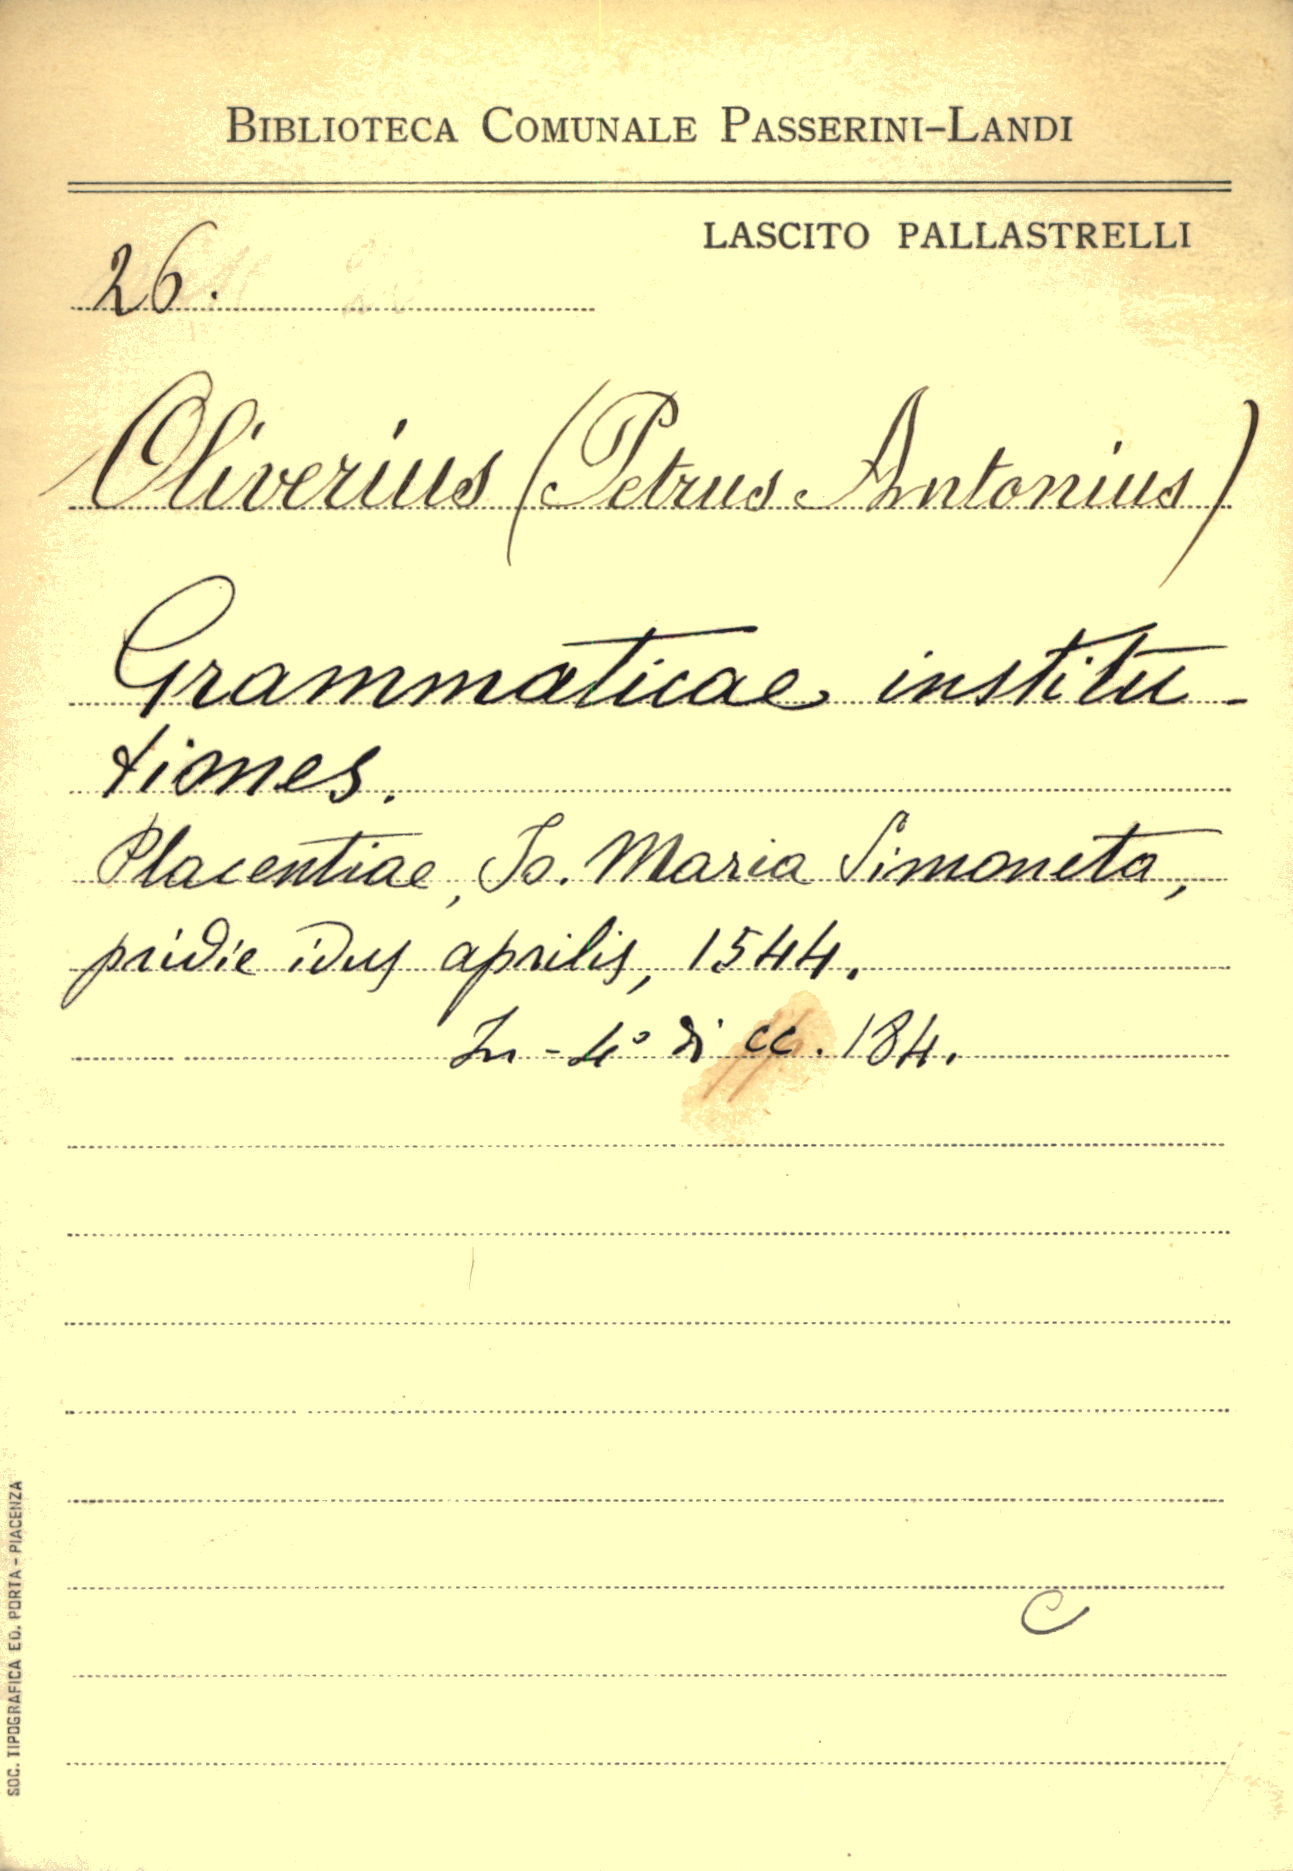 BIBLIOTECA COMUNALE PASSERINI-LANDI
LASCITO PALLASTRELLI
26.
Oliverius (Petrus Antonius)
Grammaticae institu-
tiones.
Placentiae, Io. Maria Simoneta,
pridie idus aprilis, 1544.
In-4° di cc. 184.
C
SOC. TIPOGRAFICA ED. PORTA - PIACENZA